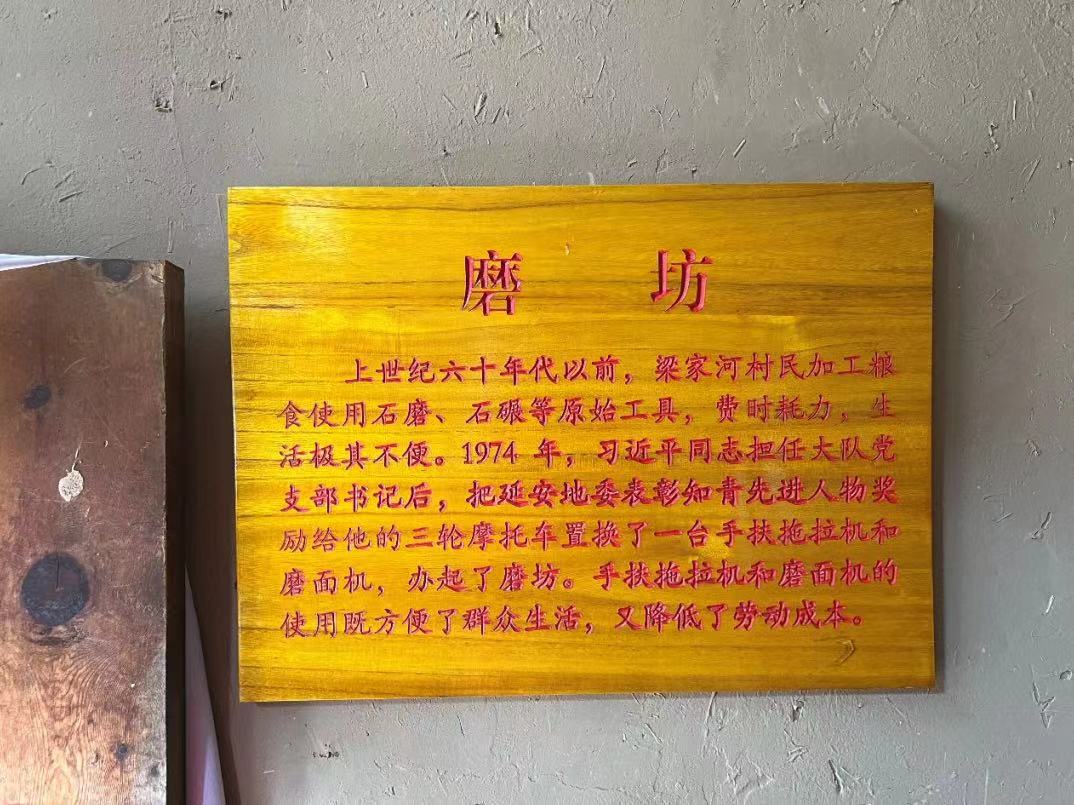 磨 坊
上世纪六十年代以前，梁家河村民加工粮
食使用石磨、石碾等原始工具，费时耗力，生
活极其不便。1974 年，习近平同志担任大队党
支部书记后，把延安地委表彰知青先进人物奖
励给他的三轮摩托车置换了一台手扶拖拉机和
磨面机，办起了磨坊。手扶拖拉机和磨面机的
使用既方便了群众生活，又降低了劳动成本。